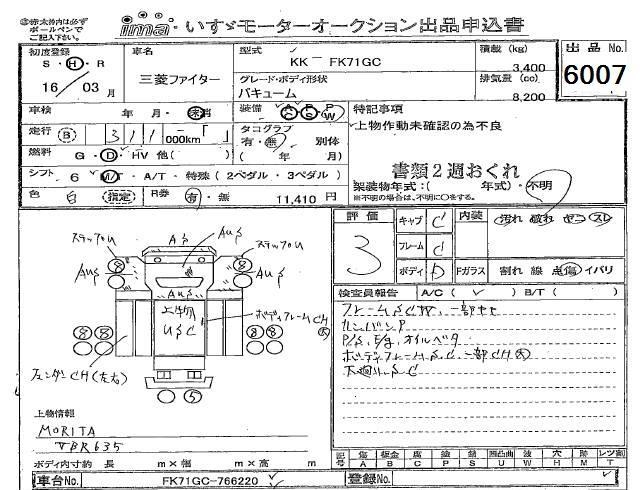 ◎赤太枠内は必ず
ボールペンで
ご記入下さい
ima いすゞモーターオークション出品申込書
初度登録
S・H・R
16 / 03 月
車名
三菱ファイター
型式
KK－FK71GC
グレード・ボディ形状
バキューム
積載 (kg)
3,400
排気量 (cc)
8,200
出品 No.
6007
車検 年・月・未満
装備 AC PS PW
特記事項
上物作動未確認の為不良
走行 B 311 000km「 」
タコグラフ
有・無 別体
( 年 月)
燃料 G・D・HV 他( )
書類２週おくれ
シフト 6 M/T・A/T・特殊(2ペダル・3ペダル)
架装物年式:( 年式)・不明
※不明の場合は、不明に〇をする。
色 白 指定 R券 有・無 11,410 円
評価
3
キャブ C
フレーム d
ボディ D
内装 汚れ 破れ ヤニ スレ
Fガラス 割れ 線 点傷 イバリ
検査員報告 A/C( ✓ ) B/T( )
フレームSCW、一部ヤセ
カンバンP
P/S、E/g、オイルベタ
ボディフレームS.C.一部CH大
下廻りS.C
ステップU
AS
AUS
ステップU
AUS
AUS
AUS
8
8
上物
USC
ボディフレームCH大
8 8
8 8
フェンダーCH(左右)
5
上物情報
MORITA
VBR635
ボディ内寸約 長 m×幅 m×高 m
記号 傷 板金 腐 塗 錆 凹凸曲 波 穴 跡 レツ割
A B C P S U W H M T
車台No. FK71GC-766220
登録No.